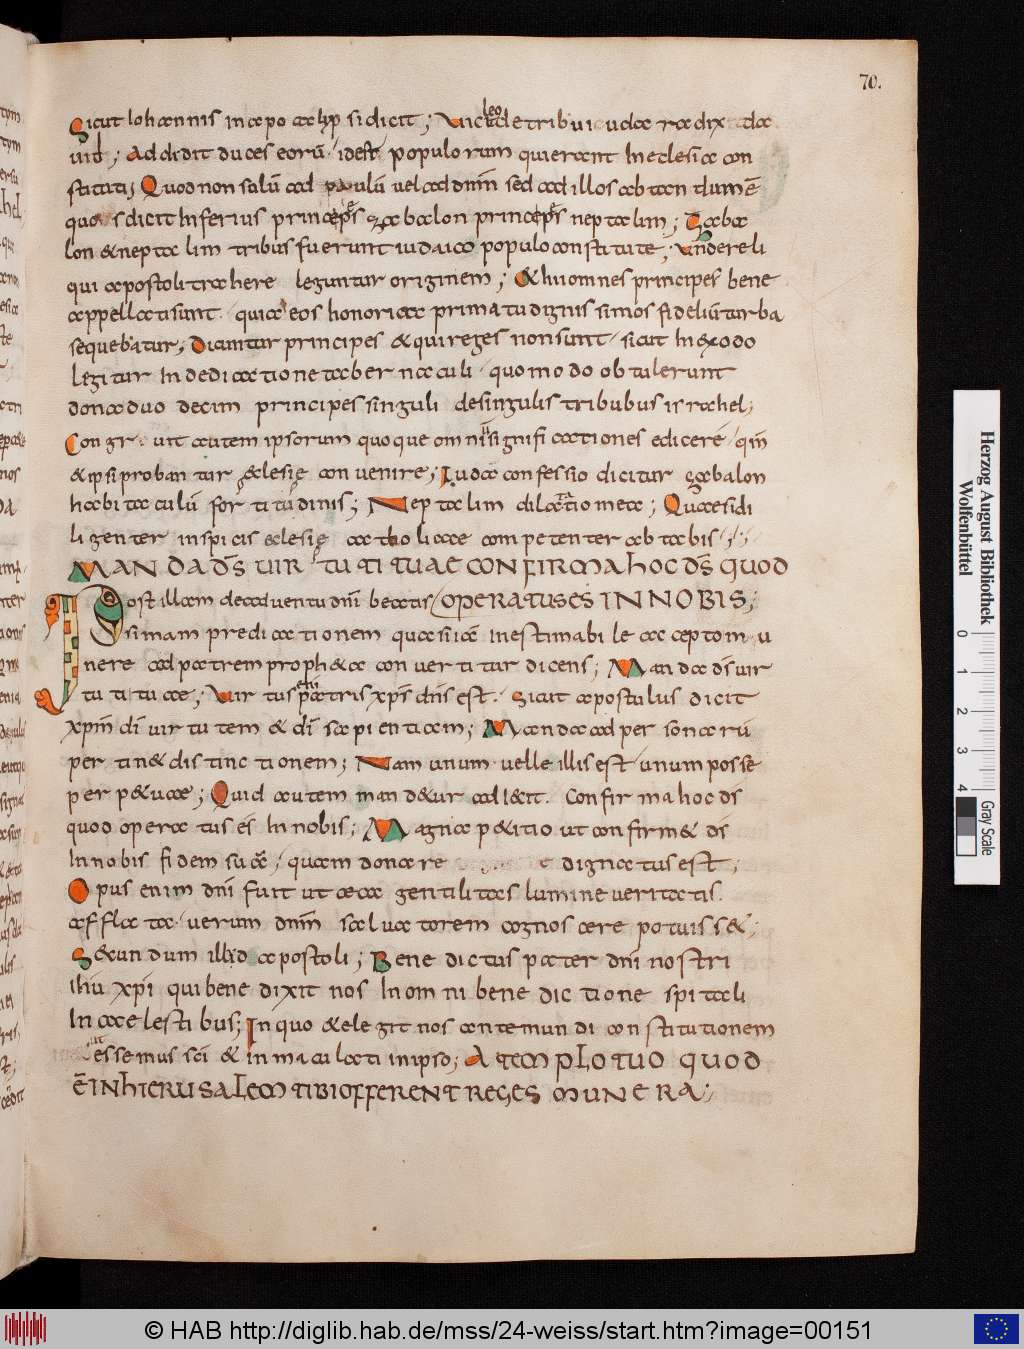 70.
Sicut Iohannis in apocalyp̄si dicit; Vicit leo de tribu iuda radix da
uid; Addidit duces eorū. idest populorum qui erant In eclesia con
stituti; Quod non solū ad paulū uel ad dn̄m sed ad illos ab tantdum ē
quos dicit Inferius principes zabalon principes neptalim; Zaba
lon & neptalim tribus fuerunt iudaico populo constitute; Vnde reli
qui apostoli trahere leguntur originem; & hii omnes principes bene
appellati sunt. quia eos honoricae primatu dignissimos fideliū turba
sequebatur; Dicuntur principes & qui reges non sunt. sicut In exodo
Legitur In dedicatione tabernaculi. quomodo obtulerunt
dona duodecim principes singuli de singulis tribubus israhel;
Congruit autem ipsorum quoque omnī significationes edicere. qm̄
& ipsi probantur ęclesię conuenire; Iuda confessio dicitur zabalon
habitaculū fortitudinis; Neptalim dilatatio mea; Quae si di
ligenter inspicis eclesię catholicae competenter abtabis;
MANDA DS̄ UIRTUTI TUAE CONFIRMA HOC DS̄ QUOD
Post illam de aduentu dn̄i beatis OPERATUS ES IN NOBIS;
simam predicationem quasi iā inestimabile acceptom u
nere ad patrem propheta conuertitur dicens; Manda ds̄ uir
tuti tuae; Virtus patris xp̄s dn̄s est. Sicut apostulus dicit
xp̄m dī uirtutem & dī sapientiam; Manda ad personarū
pertin& distinctionem; Nam unum uelle illis est unum posse
perp&uae; Quid autem mand&ur adi&it. Confirma hoc ds
quod operatus es In nobis; Magna p&itio ut confirm& ds̄
In nobis fidem suā; quam donare dignatus est;
Opus enim dn̄i fuit ut ea gentilitas lumine ueritatis
afflata. uerum dn̄m saluatorem cognoscere potuiss&;
S&cundum illud apostoli; Bene dictus pater dn̄i nostri
ih̄u xp̄i qui bene dixit nos In omni bene dictione spitali
In caelestibus; In quo & elegit nos ante mundi constitutionem
ut essemus sc̄i & inmaculati in ipso; A TEMPLO TUO QUOD
Ē IN HIERUSALEM TIBI OFFERENT REGES MUNERA;
Herzog August Bibliothek
Wolfenbüttel
0 1 2 3 4
Gray Scale
© HAB http://diglib.hab.de/mss/24-weiss/start.htm?image=00151